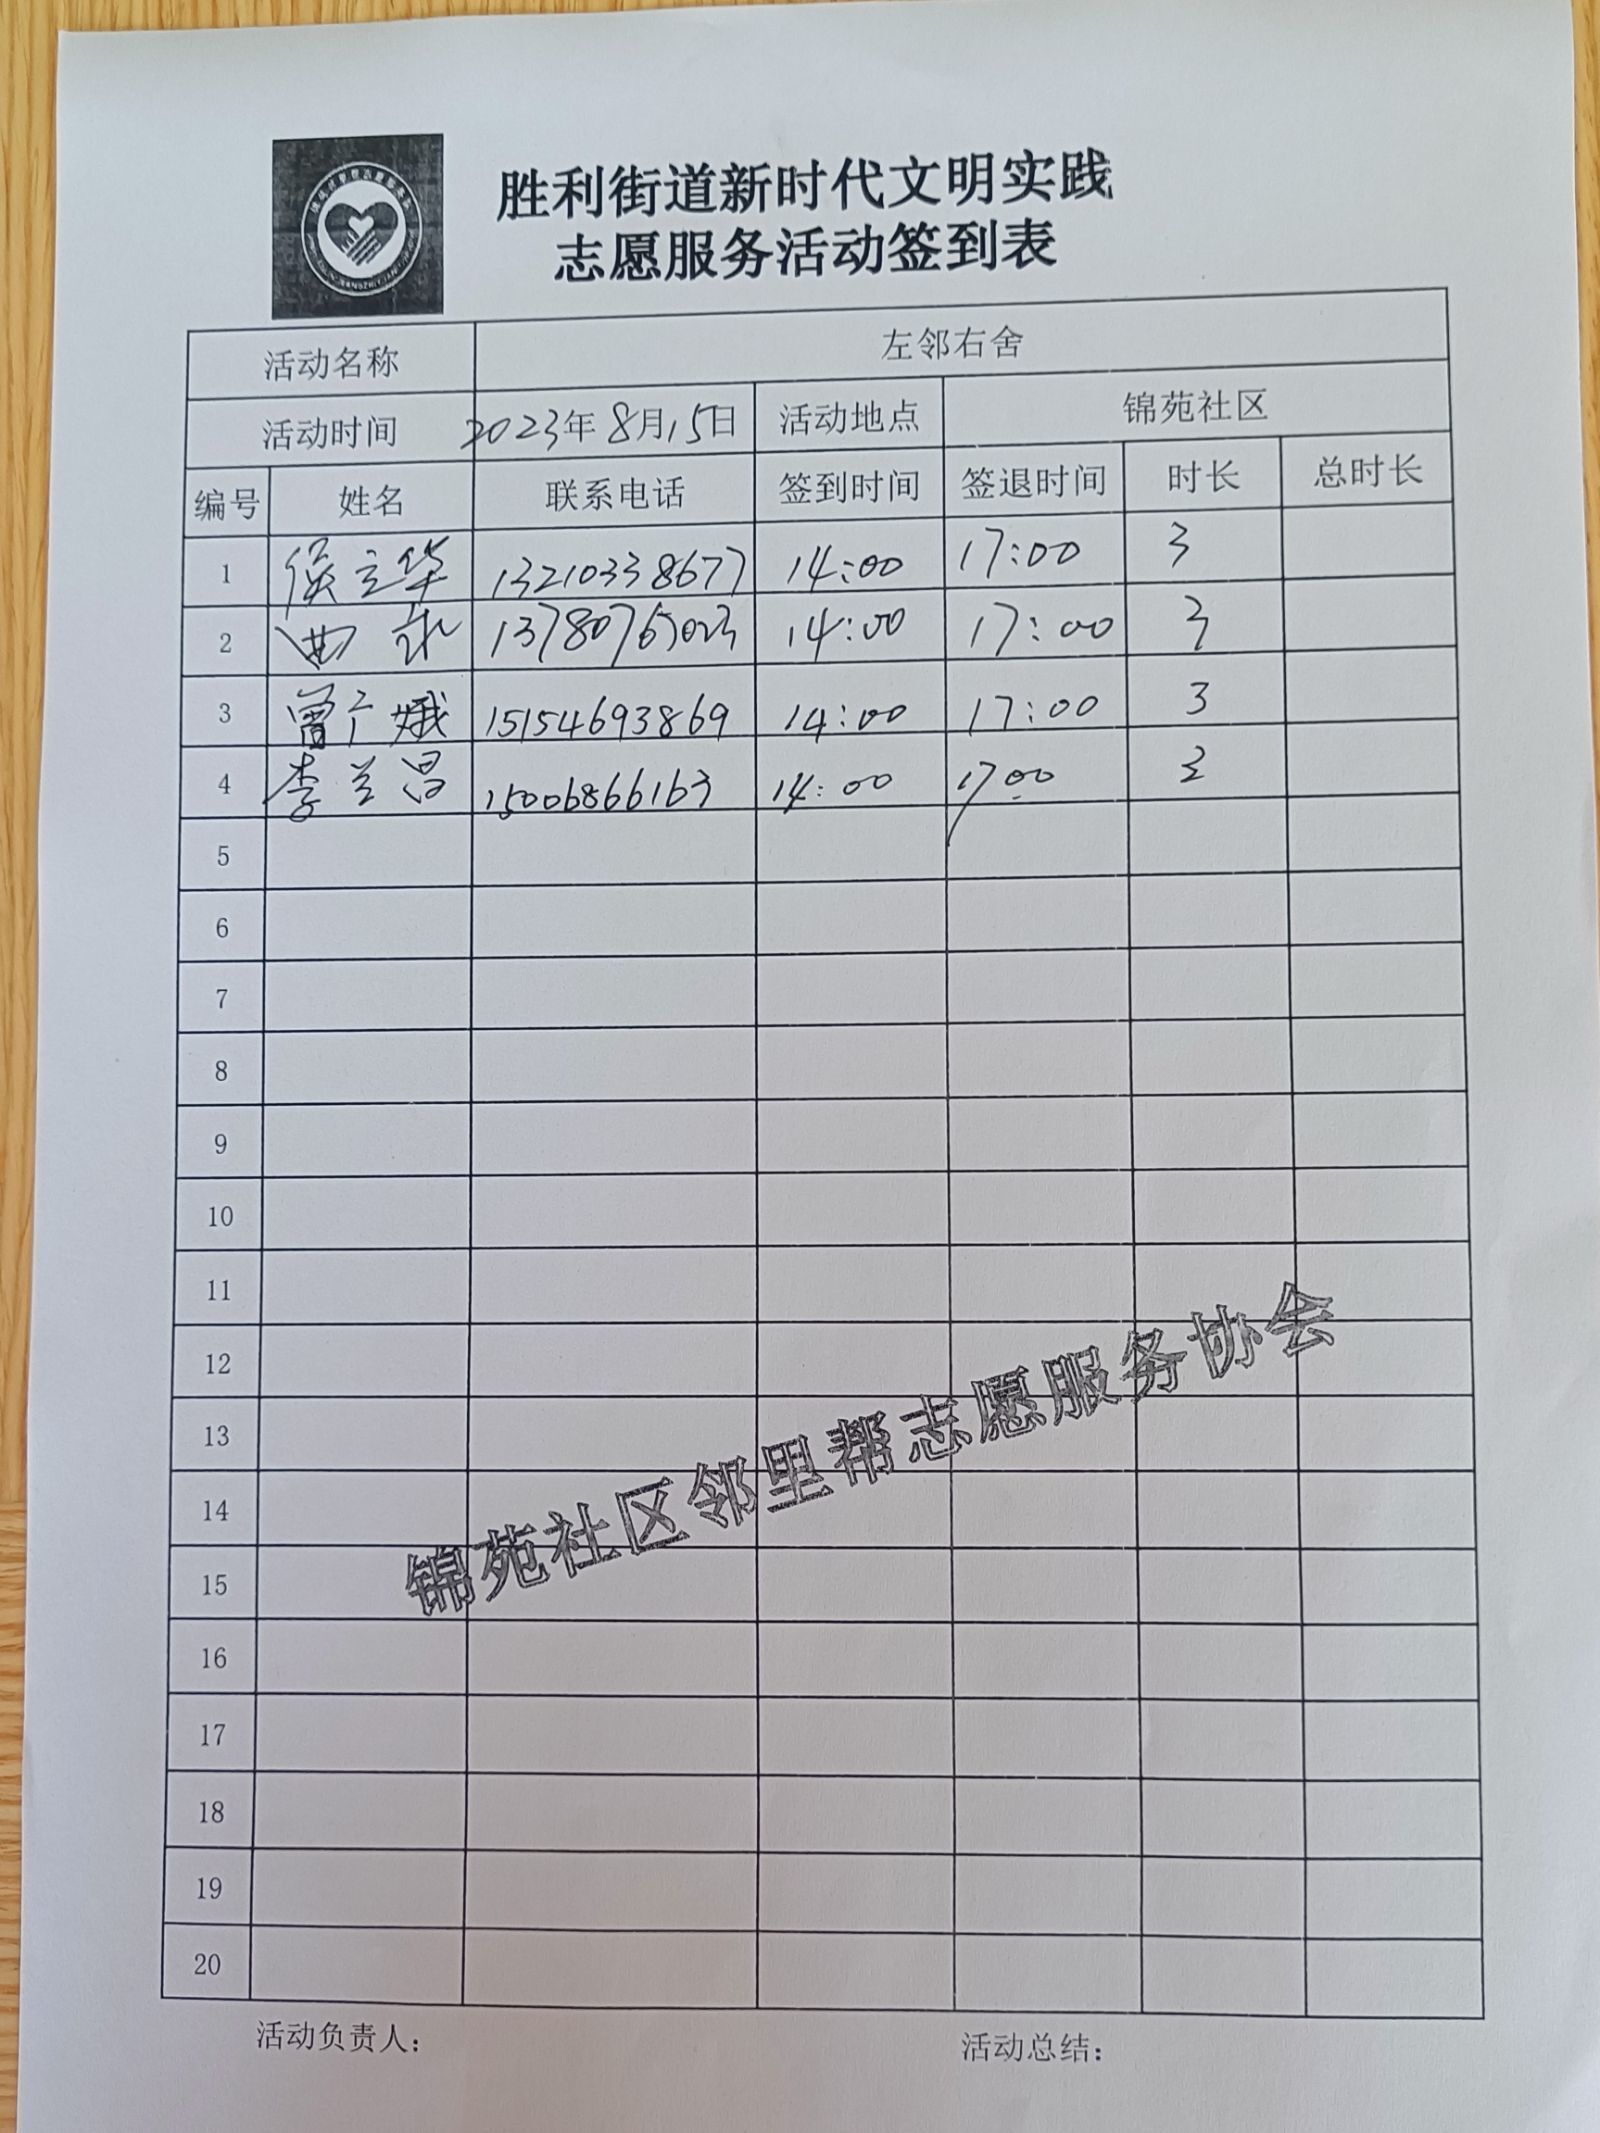 胜利街道新时代文明实践
志愿服务活动签到表
活动名称 左邻右舍
活动时间 2023年8月15日 活动地点 锦苑社区
编号 姓名 联系电话 签到时间 签退时间 时长 总时长
1 侯立华 13210338677 14:00 17:00 3
2 曲永 13780765023 14:00 17:00 3
3 曾广娥 15154693869 14:00 17:00 3
4 李兰昌 15006866163 14:00 17:00 3
5
6
7
8
9
10
11
12
13
14
15
16
17
18
19
20
锦苑社区邻里帮志愿服务协会
活动负责人： 活动总结：